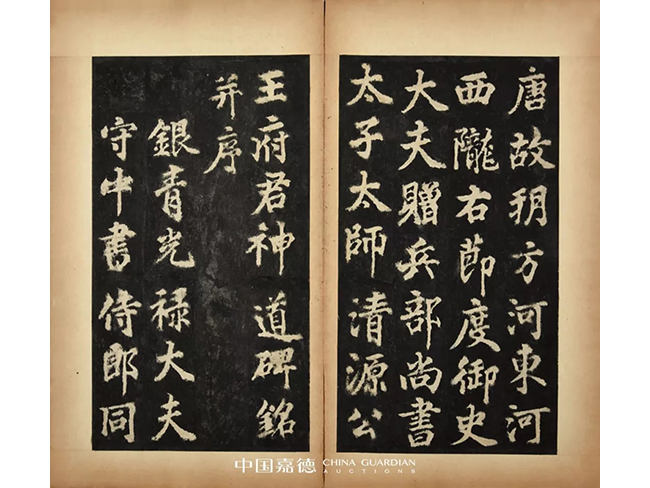 唐故玥方河東河
西隴右節度御史
大夫贈兵部尚書
太子太師清源公
王府君神道碑銘
并序
銀青光禄大夫
守中書侍郎同
中国嘉德 CHINA GUARDIAN
AUCTIONS